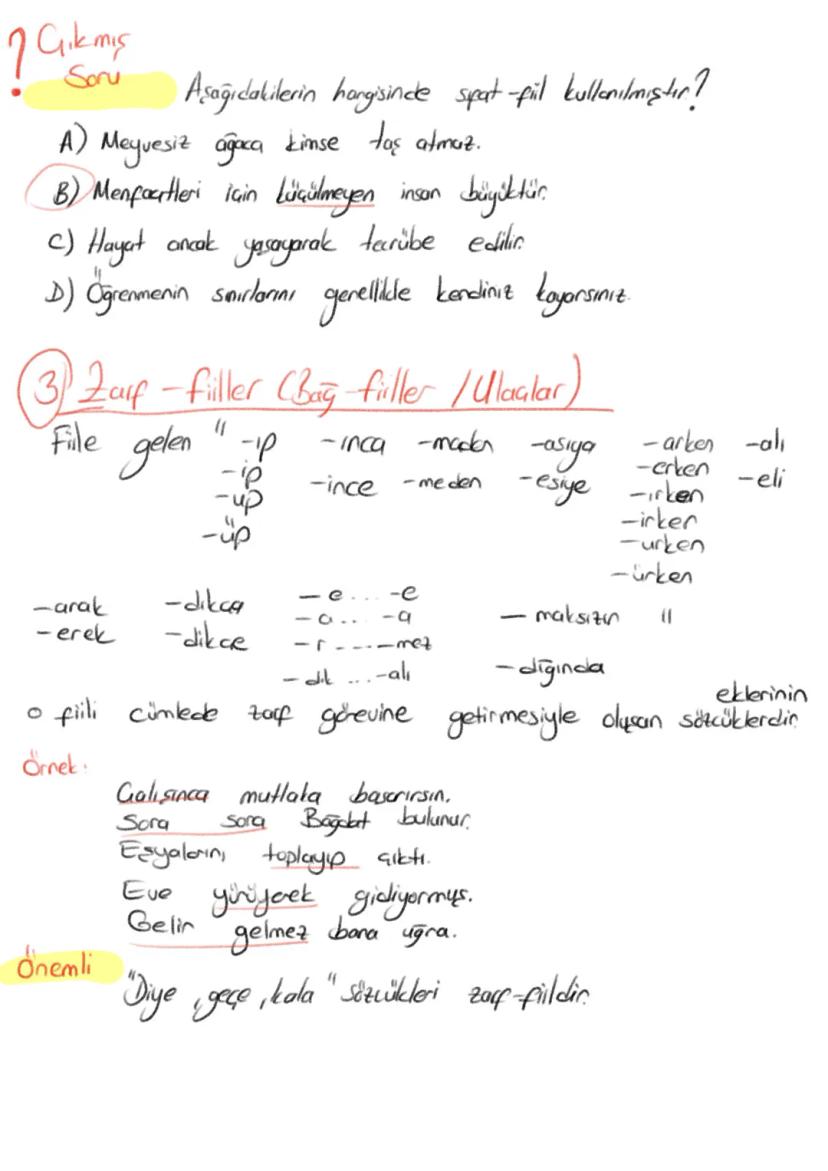 ? Çıkmış
Soru
Aşağıdakilerin hangisinde sıfat-fiil kullanılmıştır?
A) Meyvesiz ağaca kimse taş atmaz.
B) Menfaatleri için küçülmeyen insan büyüktür.
C) Hayat ancak yaşayarak tecrübe edilir.
D) Öğrenmenin sınırlarını genellikle kendiniz koyarsınız.
3) Zarf-fiiller (Bağ-fiiller / Ulaçlar)
Fiile gelen " -ıp -ınca -madan -asıya -arken -alı
-ip -ince -meden -esiye -erken -eli
-up -ırken
-üp -irken
-urken
-ürken
-arak -dıkça -e... -e
-erek -dikçe -a... -a -maksızın "
-r ... -mez
-dı ... -alı -dığında
o fiili cümlede zarf görevine getirmesiyle oluşan eklerinin sözcüklerdir.
Örnek:
Çalışınca mutlaka başarırsın.
Sora sora Bağdat bulunur.
Eşyalarını toplayıp çıktı.
Eve yürüyerek gidiyormuş.
Gelir gelmez bana uğra.
Önemli
"Diye, geçe, kala" sözcükleri zarf-fiildir.